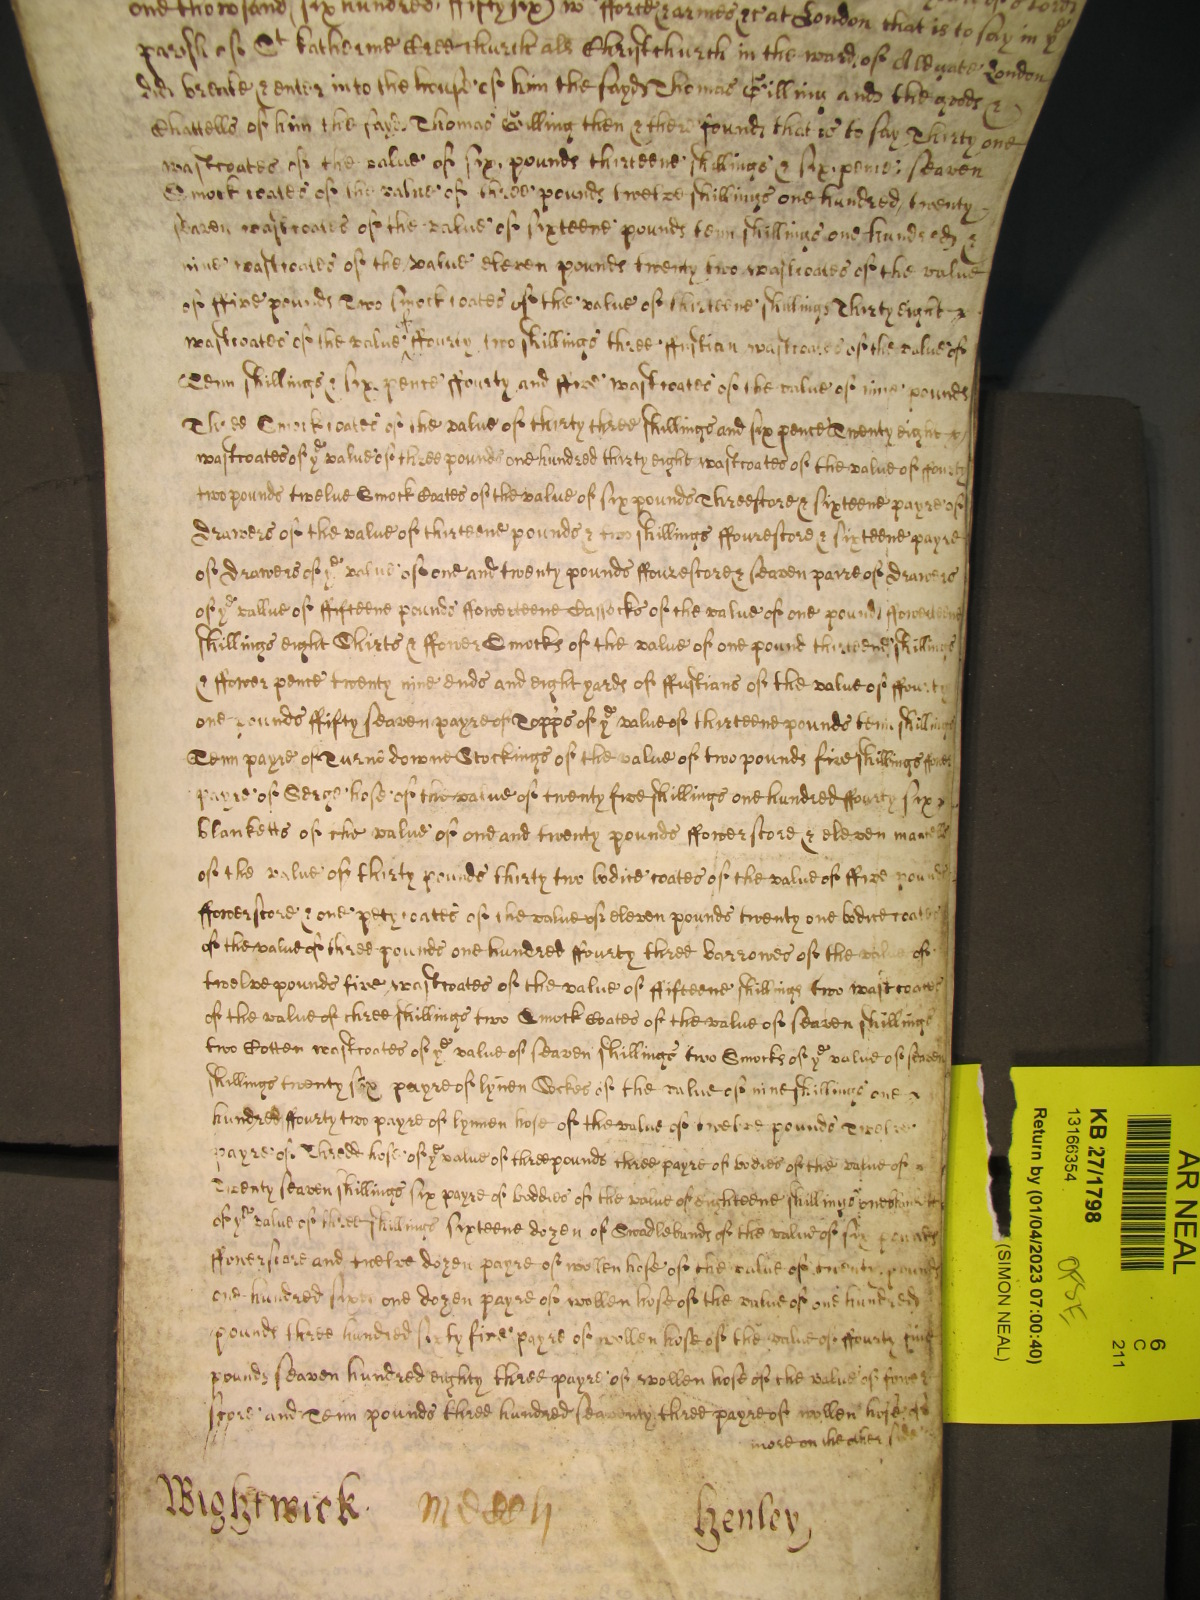 one thousand six hundred ffifty six w<sup>th</sup> fforce & armes &c at London that is to say in y<sup>e</sup>
parish of S<sup>t</sup> Katherine Cree church als Christchurch in the ward of Algate London
did breake & enter into the house of him the sayd Thomas Gilling and the goods &
Chattells of him the sayd Thomas Gilling then & there found that is to say Thirty one
wastcoates of the value of six pounds thirteene shillings & six pence seaven
Smock coates of the value of three pounds twelve shillings one hundred twenty
seaven wastcoates of the value of sixteene pounds tenn shillings one hundred &
nine wastcoates of the value eleven pounds twenty two wastcoates of the value
of ffive pounds Two Smock coates of the value of thirteene shillings Thirty eight
wastcoates of the value ffourty two shillings three ffustian wastcoates of the value of
Tenn shillings & six pence ffourty and ffive wastcoates of the value of nine pounds
Three Smock coates of the value of thirty three shillings and six pence Twenty eight
wastcoates of y<sup>e</sup> value of three pounds one hundred thirty eight wastcoates of the value of ffourty
two pounds twelve Smock Coates of the value of six pounds Threescore & sixteene payre of
drawers of the value of thirteene pounds & two shillings ffourescore & sixteene payre
of drawers of y<sup>e</sup> value of one and twenty pounds ffourescore & seaven paire of drawers
of y<sup>e</sup> vallue of ffifteene pounds ffowerteene Cassocks of the value of one pound ffowerteene
shillings eight Shirts & ffower Smocks of the value of one pound thirteene shillings
& ffower pence twenty nine ends and eight yards of ffustians of the value of ffourty
one pounds ffifty seaven payre of Topps of y<sup>e</sup> value of thirteene pounds tenn shillings
Tenn payre of Turne downe Stockings of the value of two pounds five shillings ffower
payre of Serge hose of the value of twenty five shillings one hundred ffourty six
blanketts of the value of one and twenty pounds ffowerscore & eleven mantells
of the value of thirty pounds thirty two bodice coates of the value of ffive pounds
ffowerscore & one pety coates of the value of eleven pounds twenty one bodice coates
of the value of three pounds one hundred ffourty three barrowes of the value of
twelve pounds five wastcoates of the value of ffifteene shillings two wastcoates
of the value of three shillings two Smock Coates of the value of seaven shillings
two Cotten wastcoates of y<sup>e</sup> value of seaven shillings two Smocks of y<sup>e</sup> value of seaven
shillings twenty six payre of lynen Sockes of the value of nine shillings one
hundred ffourty two payre of lynnen hose of the value of twelve pounds Twelve
payre of Thredd hose of y<sup>e</sup> value of three pounds three payre of bodies of the value of
Twenty seaven shillings six payre of boddies of the value of eighteene shillings
of y<sup>e</sup> value of three shillings sixteene dozen of Swadlebands of the value of six pounds
ffowerscore and twelve dozen payre of wollen hose of the value of twenty pounds
one hundred sixty one dozen payre of wollen hose of the value of one hundred
pounds three hundred sixty five payre of wollen hose of the value of ffourty five
pounds seaven hundred eighty three payre of wollen hose of the value of fower
score and Tenn pounds three hundred seaventy three payre of wollen hose of
more on the other side
Wightwick Meech Henley
AR NEAL
KB 27/1798
13166354
Return by (01/04/2023 07:00:40)
(SIMON NEAL)
6
C
211